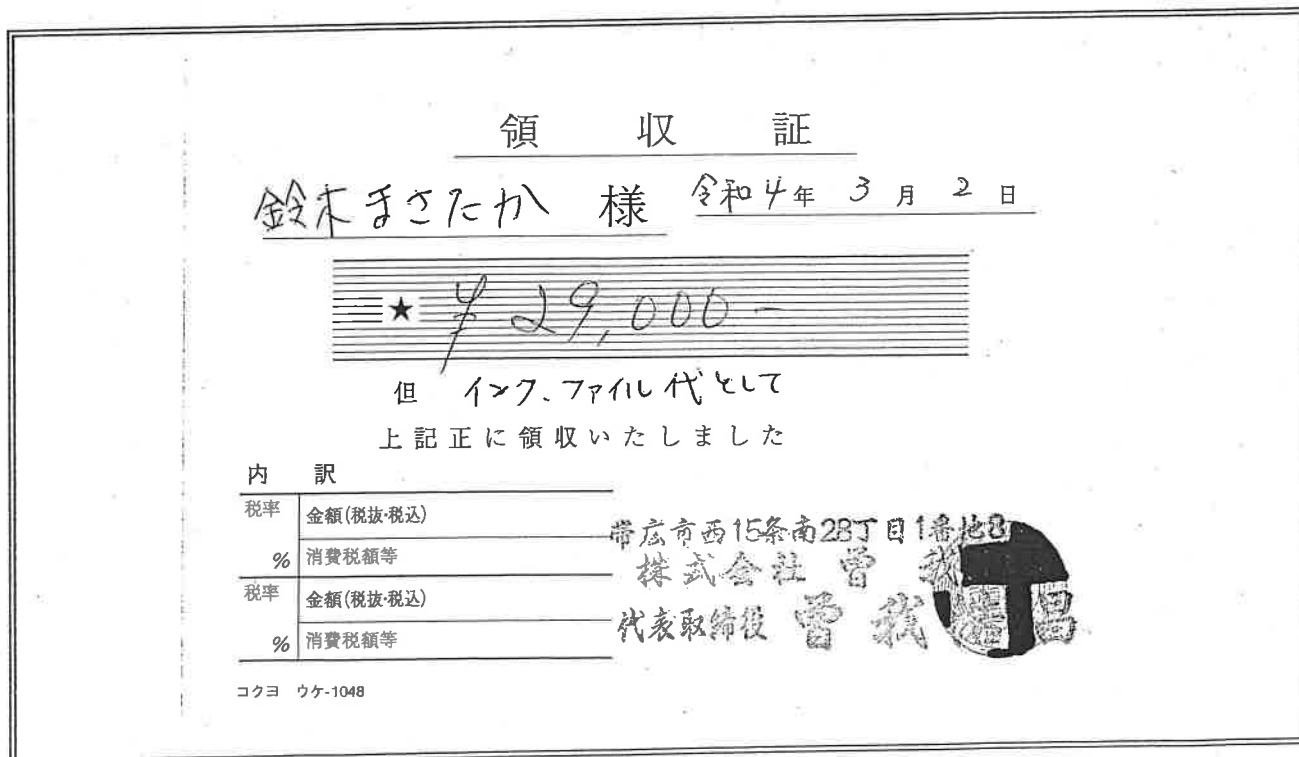 領収証
鈴木まさたか 様 令和4年 3月 2日
★ ¥29,000-
但 インク、ファイル代として
上記正に領収いたしました
内訳
税率 金額(税抜・税込)
% 消費税額等
税率 金額(税抜・税込)
% 消費税額等
帯広市西15条南28丁目1番地8
株式会社 曽我
代表取締役 曽我
コクヨ ウケ-1048